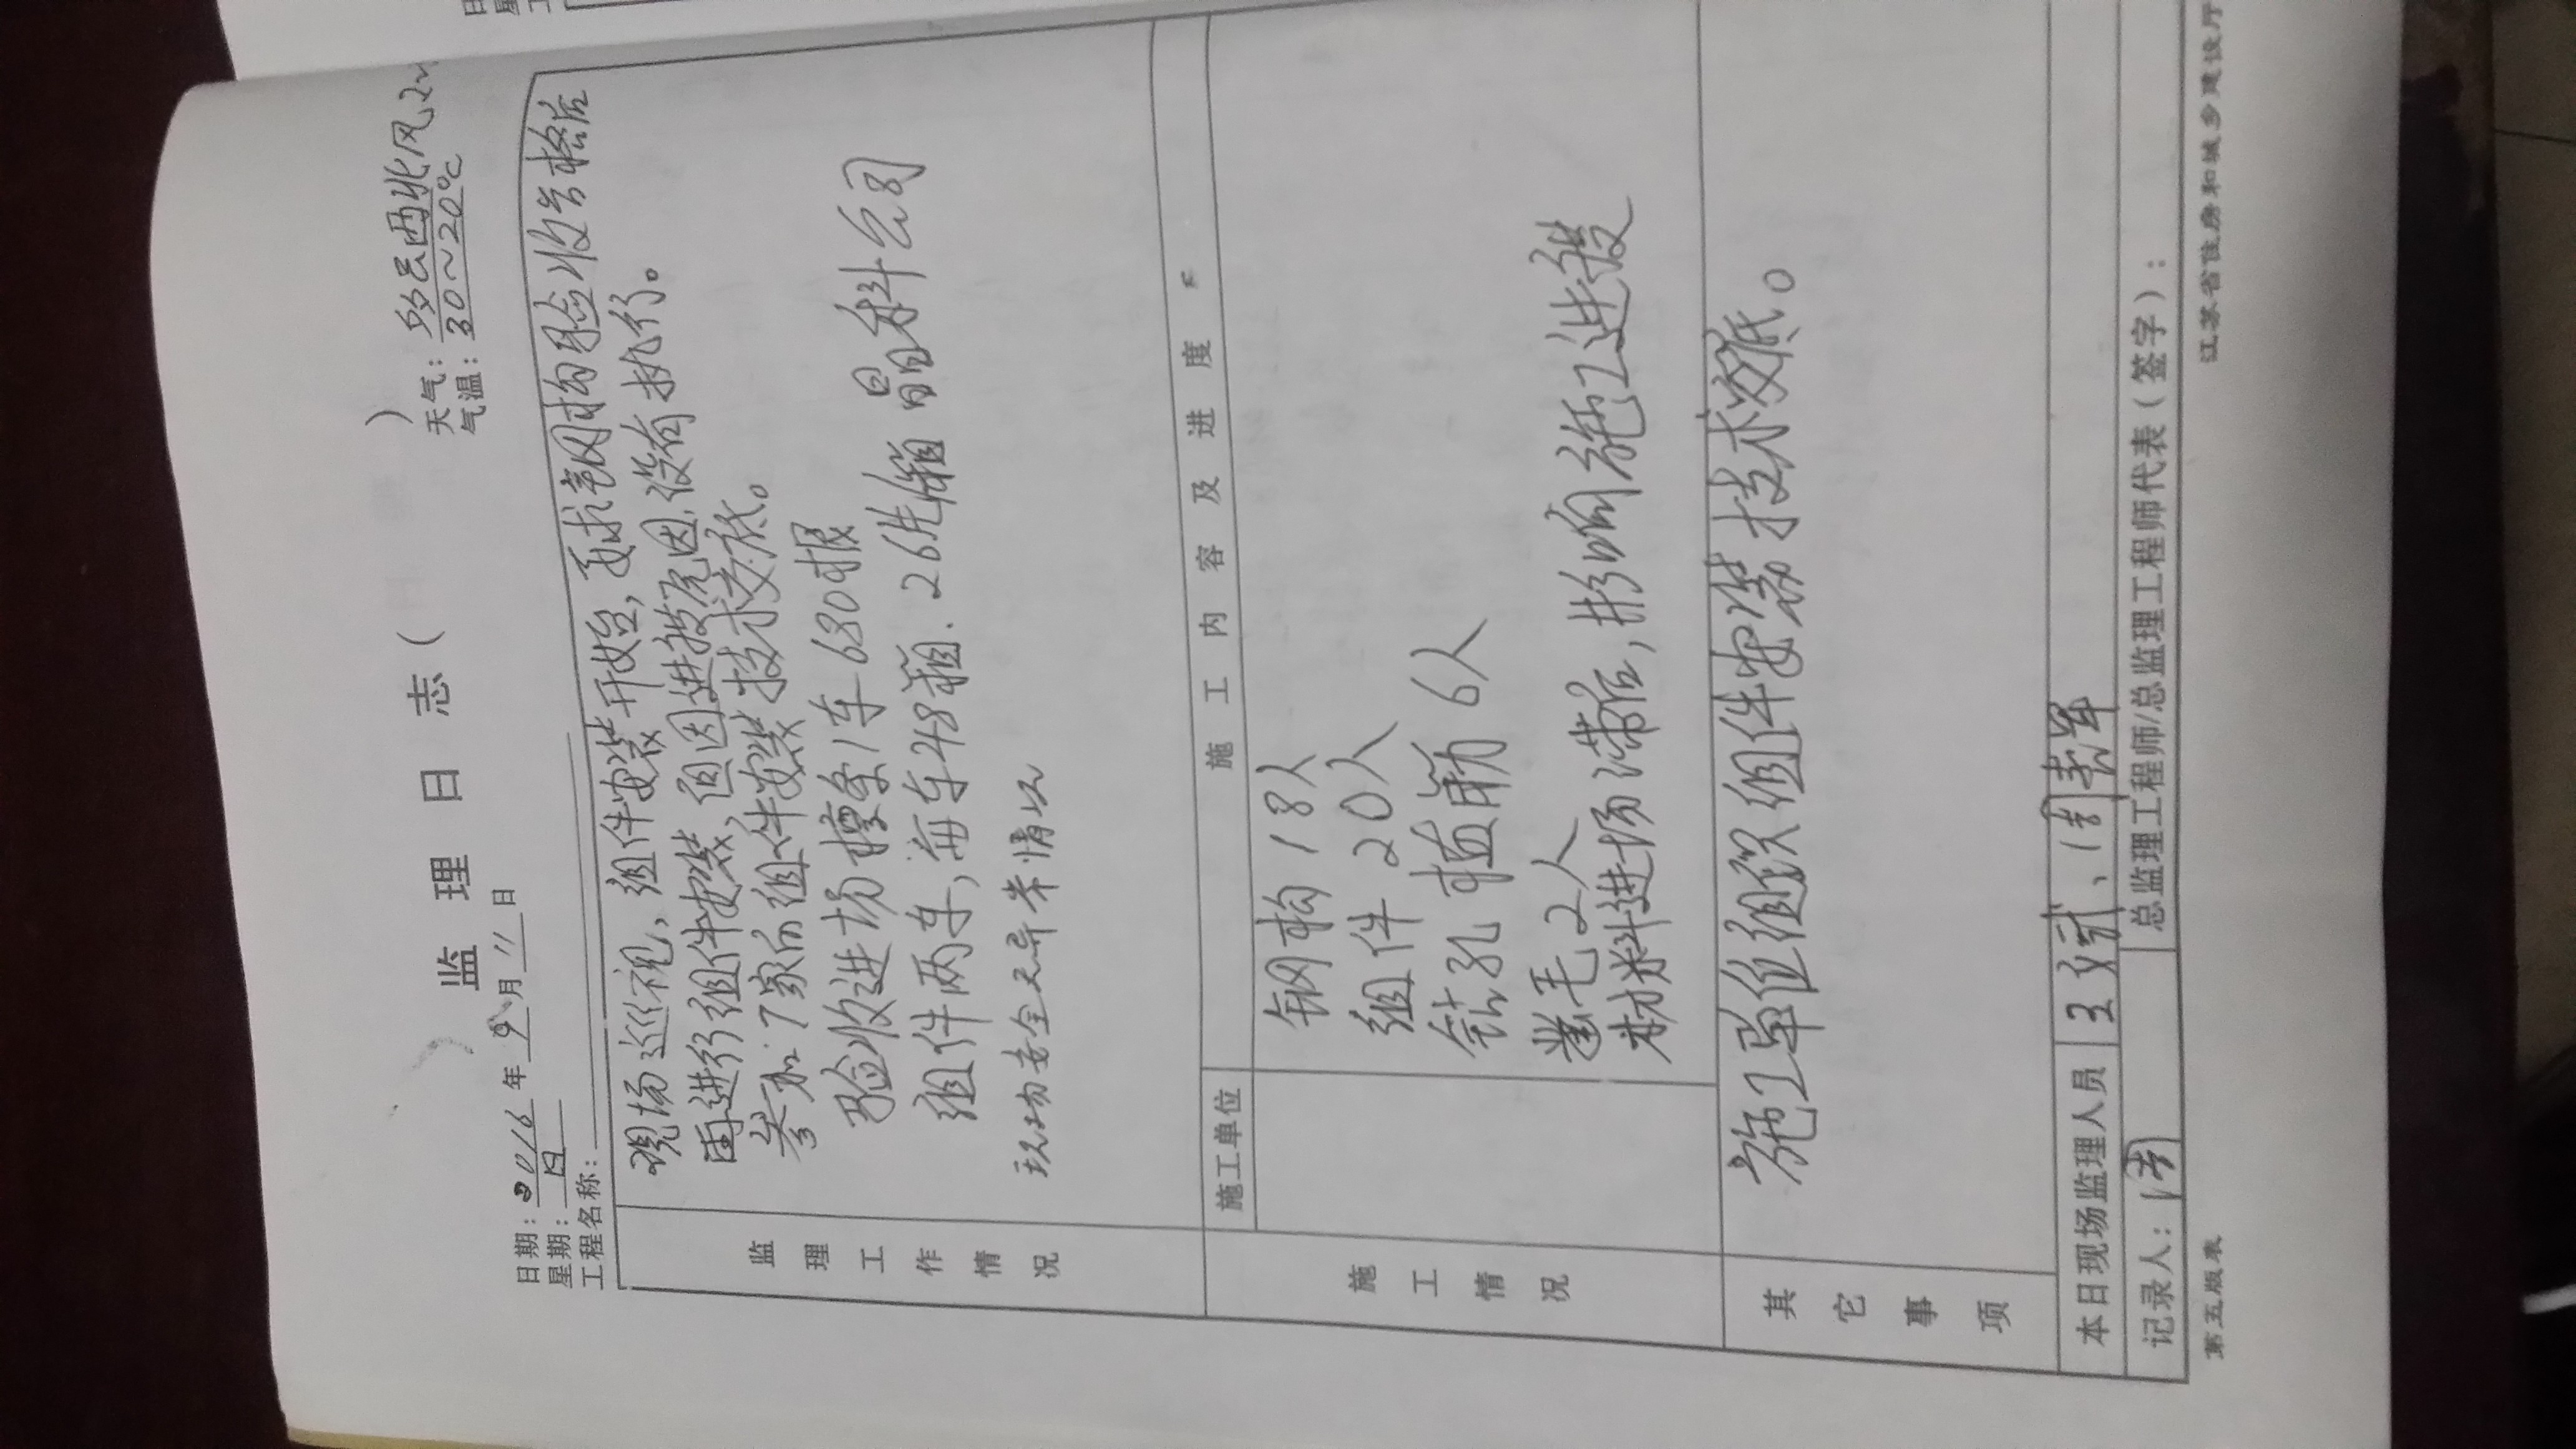 监理日志( )
日期：2016年9月11日 天气：多云西北风2
星期：日 气温：30~20℃
工程名称：
监理工作情况
现场巡视，组件安装开始，要求钢构验收合格后
再进行组件安装，但因进度原因，没有执行。
参加了家的组件安装技术交底。
验收进场檩条1车680根
组件两车，每车48箱，26片/箱 晶科公司
现场安全无异常情况
施工情况
施工单位 施工内容及进度
钢构18人
组件20人
钻孔植筋6人
凿毛2人
材料进场滞后，影响施工进度
其它事项
施工单位组织组件安装技术交底。
本日现场监理人员
记录人： 总监理工程师/总监理工程师代表（签字）：
第五版表 江苏省住房和城乡建设厅